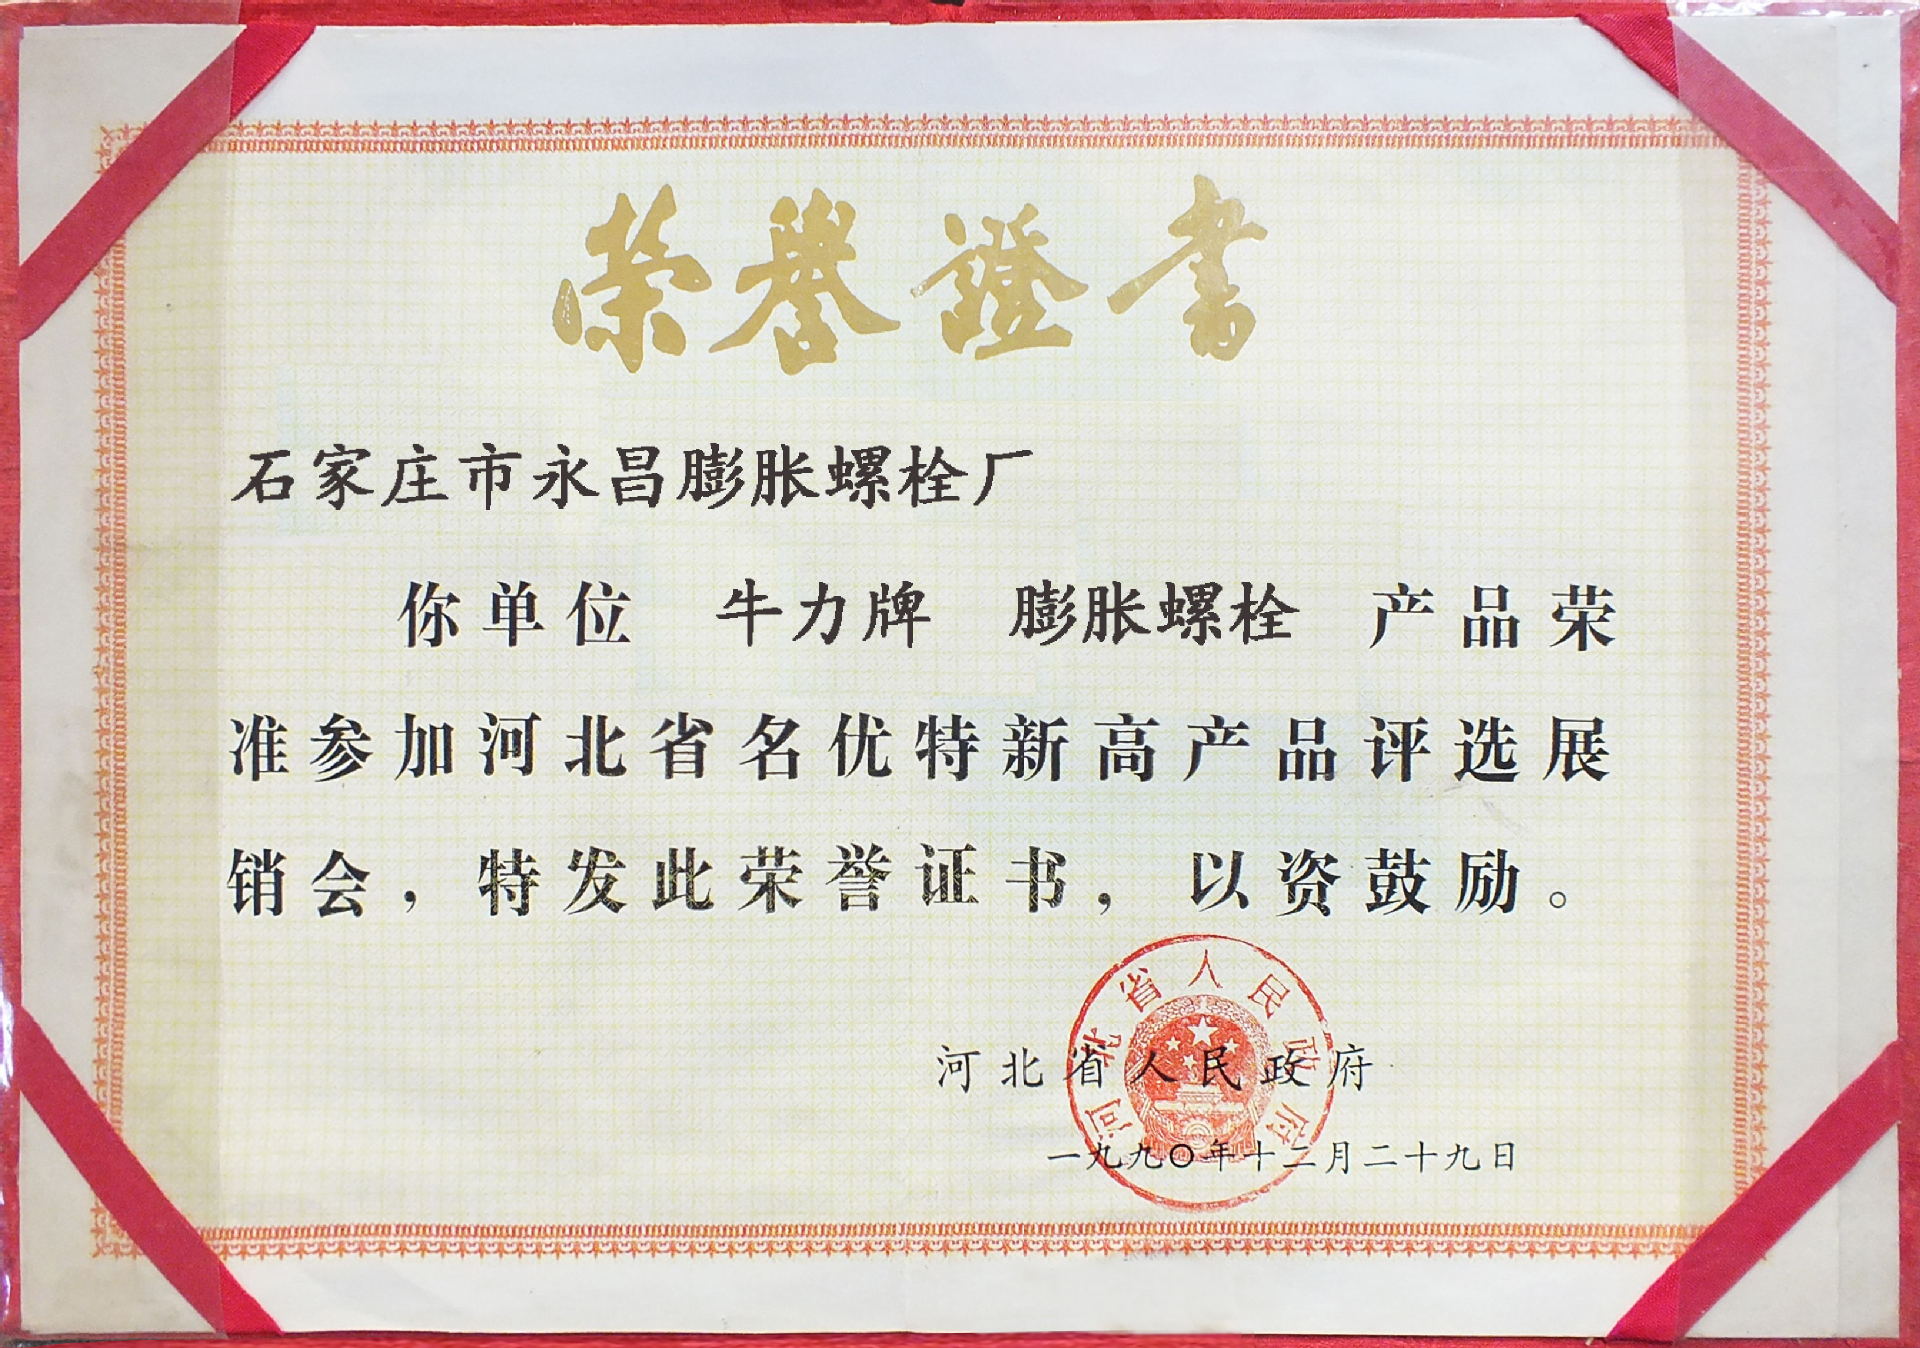 荣誉證书
石家庄市永昌膨胀螺栓厂
你单位 牛力牌 膨胀螺栓 产品荣
准参加河北省名优特新高产品评选展
销会，特发此荣誉证书，以资鼓励。
河北省人民政府
河北省人民政府
一九九〇年十二月二十九日